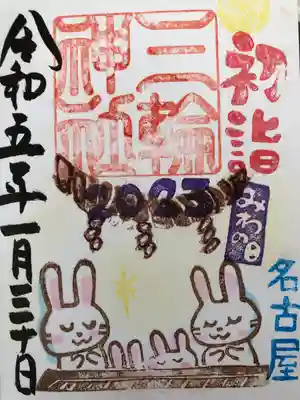 初詣
三輪
神社
2023
みわの日
名古屋
令和五年一月三十日